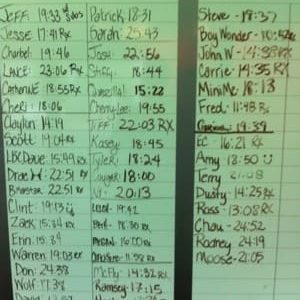 JEFF: 19:33
Jesse: 17:41 Rx
Charbel: 19:46
LANCE: 23:06 Rx
18:55 Rx
Cheri: 18:06
Clayton: 14:19
Scott:
LBC Dave: 15:49 Rx
Drae W: 22:51 Rx
22:51 Rx
Clint: 19:13
Zack: 15:34 Rx
Erin: 15:34
Warren: 19:03
Don: 24:38
Wolf: 17:38
Patrick: 18:31
Sarah: 25:43
Josh: 22:56
18:44
15:22
19:55
TIFF: 22:03 RX
Kasey: 18:45
Tyler: 18:24
18:00
Vi: 20:13
19:42
16:00 Rx
McFly: 14:32 Rx
Ramsey: 17:15
Steve - 18:37
Boy Wonder - 10:42 Rx
John W - 14:38 RX
Carrie - 14:35 RX
Mini Me 18:13
Fred - 11:48 Rx
19:39
EC - 16:21 RX
Amy 18:50
Terry 21:08
Dusty - 14:25 RX
Ross - 13:08 RX
Chau - 24:52
Rodney 24:19
Moose - 21:05